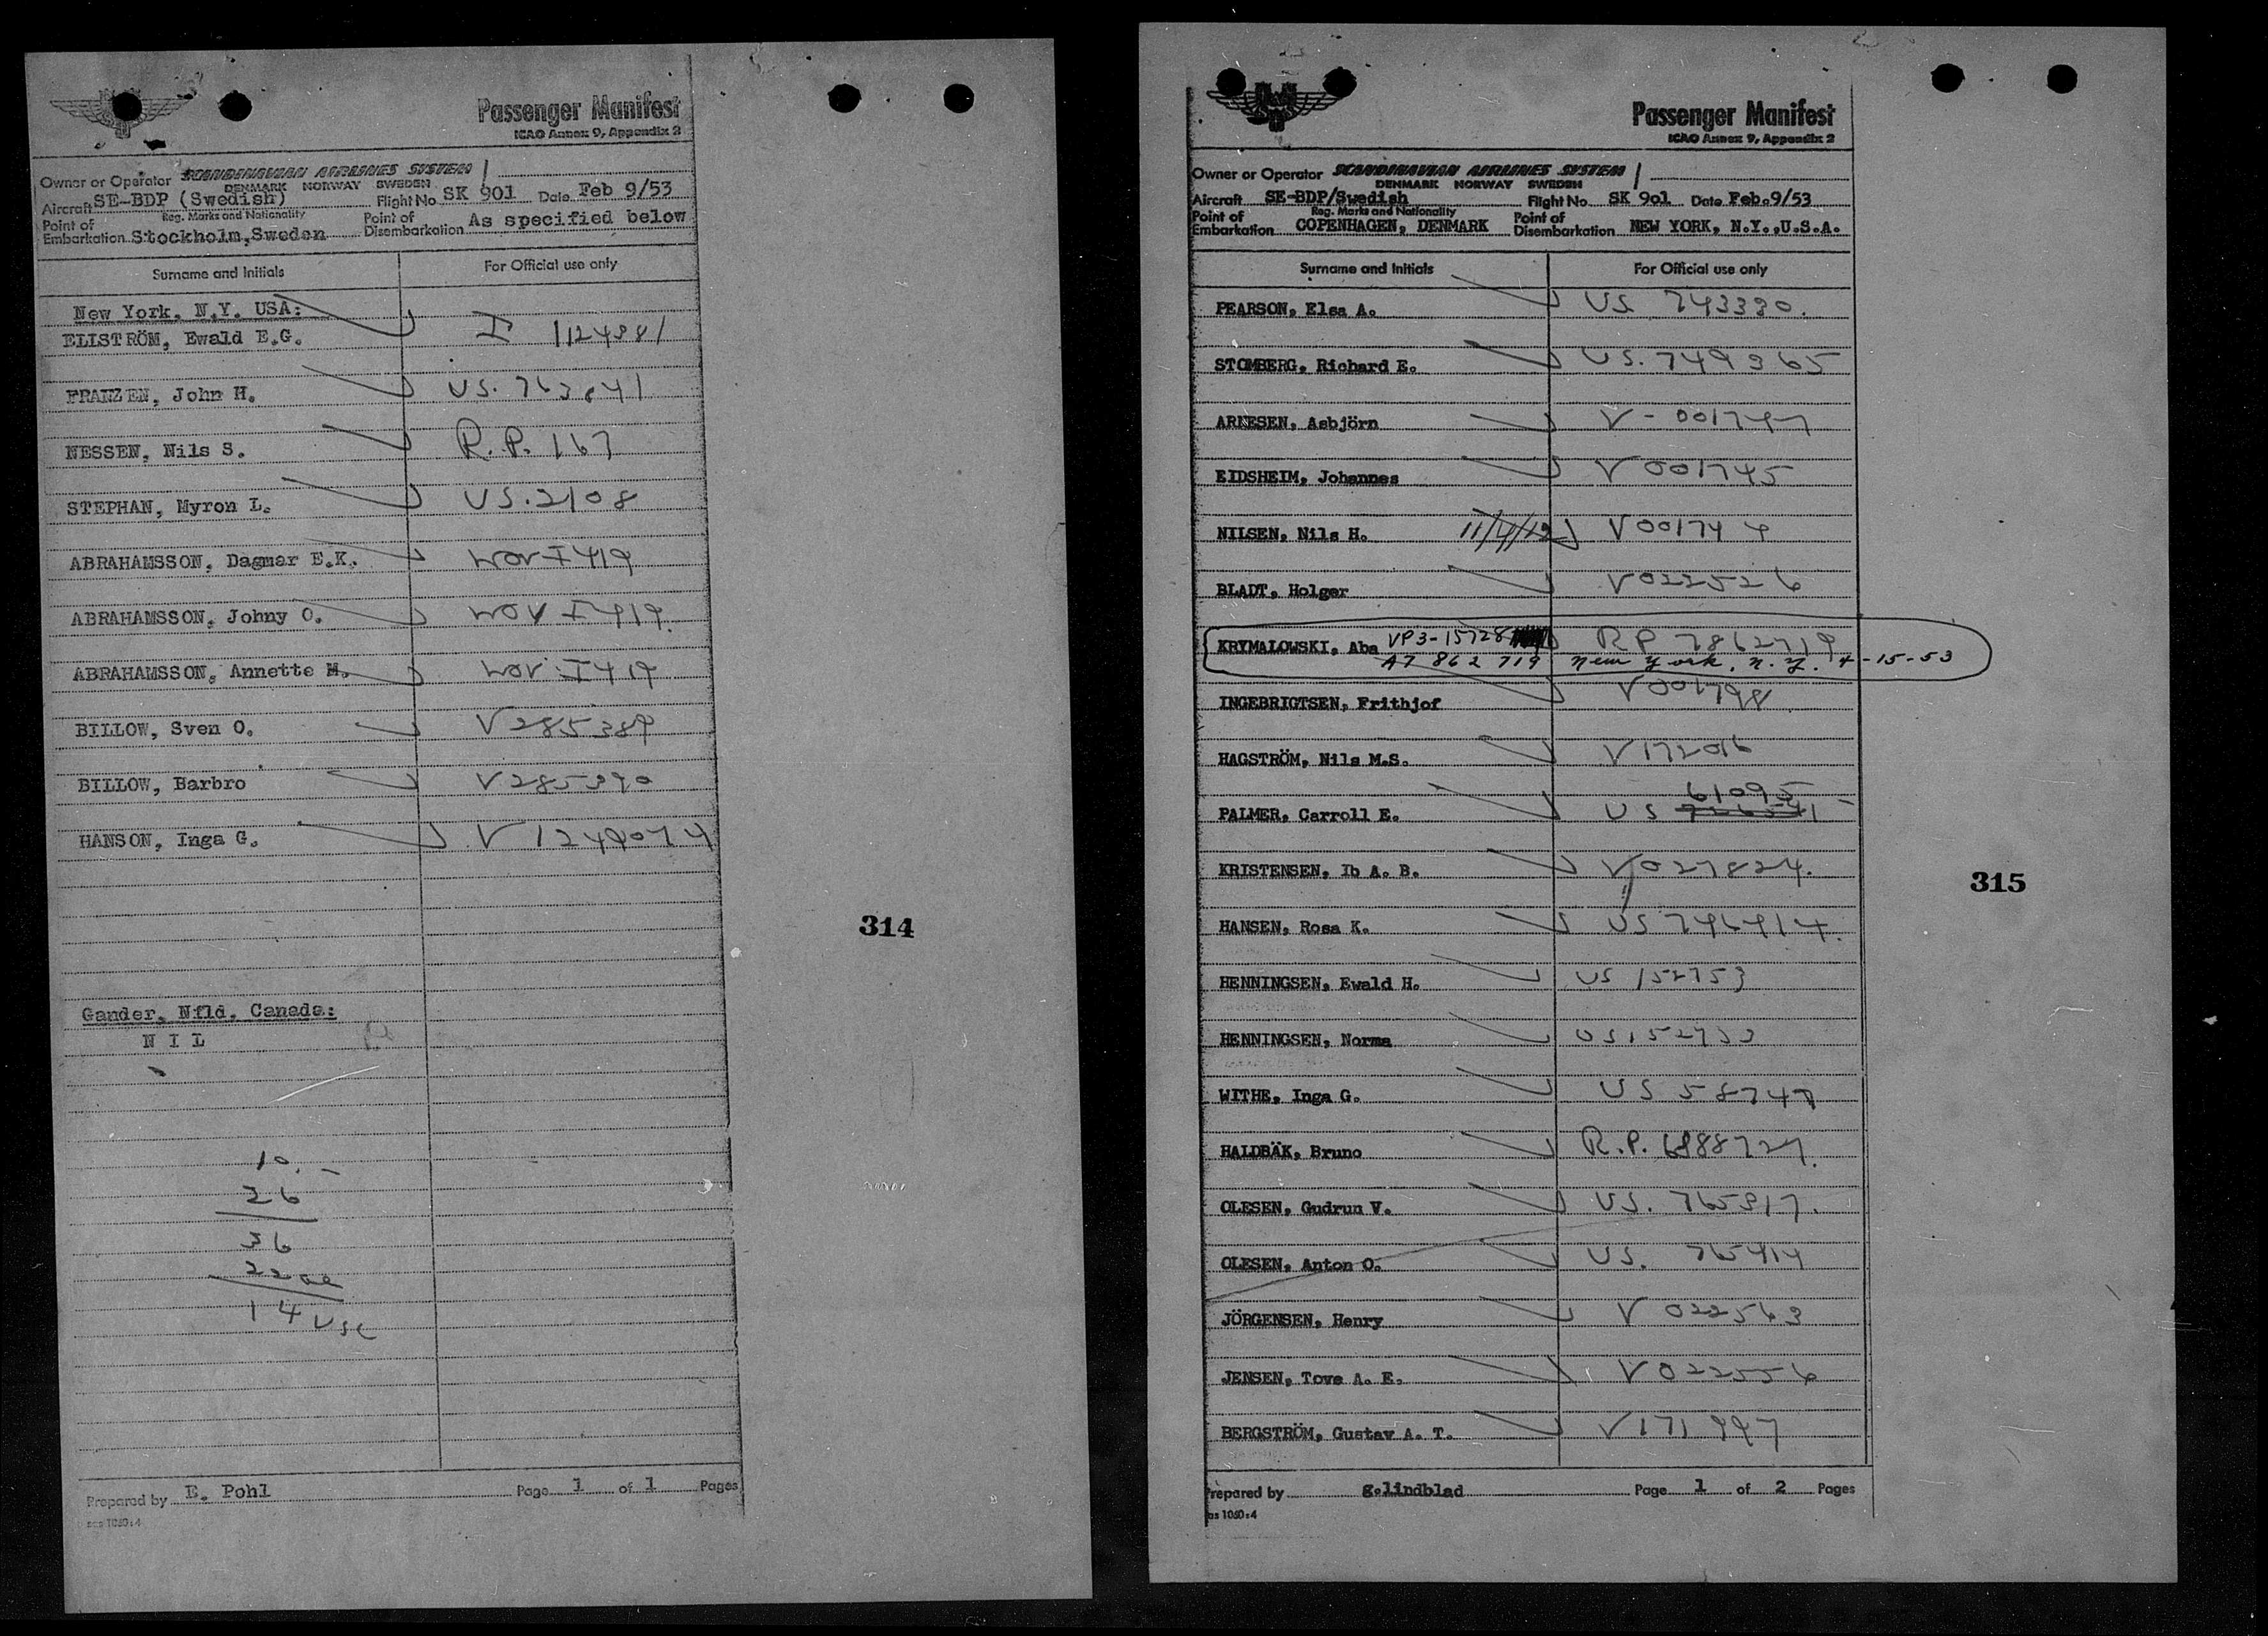 Passenger Manifest
ICAO Annex 9, Appendix 2
Owner or Operator SCANDINAVIAN AIRLINES SYSTEM
DENMARK NORWAY SWEDEN
Aircraft SE-BDP (Swedish) Flight No SK 901 Date Feb 9/53
Reg. Marks and Nationality
Point of Embarkation Stockholm, Sweden Point of Disembarkation As specified below
Surname and Initials For Official use only
New York, N.Y. USA:
ELISTRÖM, Ewald E.G. I 1124381
FRANZEN, John H. US. 763841
NESSEN, Nils S. R.P. 167
STEPHAN, Myron L. US. 2108
ABRAHAMSSON, Dagmar E.K. WOV-I 419
ABRAHAMSSON, Johny O. WOV I 419.
ABRAHAMSSON, Annette M. WOV-I 419
BILLOW, Sven O. V 285389
BILLOW, Barbro V 285390
HANSON, Inga G. V 1249074
314
Gander, Nfld, Canada:
N I L
10.-
26
36
22
14 USC
Prepared by E. Pohl Page 1 of 1 Pages
sas 1050:4
Passenger Manifest
ICAO Annex 9, Appendix 2
Owner or Operator SCANDINAVIAN AIRLINES SYSTEM
DENMARK NORWAY SWEDEN
Aircraft SE-BDP/Swedish Flight No SK 9o1 Date Feb.9/53
Reg. Marks and Nationality
Point of Embarkation COPENHAGEN, DENMARK Point of Disembarkation NEW YORK, N.Y.,U.S.A.
Surname and Initials For Official use only
PEARSON, Elsa A. US 743380.
STOMBERG, Richard E. US. 749365
ARNESEN, Asbjörn V-001747
EIDSHEIM, Johannes V 001745
NILSEN, Nils H. 11/4/19 V 001744
BLADT, Holger V 022526
KRYMALOWSKI, Aba VP3-15728 RP 7862719
A7 862 719 New York, N.Y. 4-15-53
INGEBRIGTSEN, Frithjof V 001748
HAGSTRÖM, Nils M.S. V 172016
61095
PALMER, Carroll E. US 726541
KRISTENSEN, Ib A. B. V 027824.
HANSEN, Rosa K. US 746414.
315
HENNINGSEN, Ewald H. US 152753
HENNINGSEN, Norma US 152753
WITHE, Inga G. US 58747
HALDBÄK, Bruno R.P. 6888727.
OLESEN, Gudrun V. US. 765917.
OLESEN, Anton O. US. 765414
JÖRGENSEN, Henry V 022563
JENSEN, Tove A. E. V 022556
BERGSTRÖM, Gustav A. T. V 171997
Prepared by g.lindblad Page 1 of 2 Pages
as 1050:4